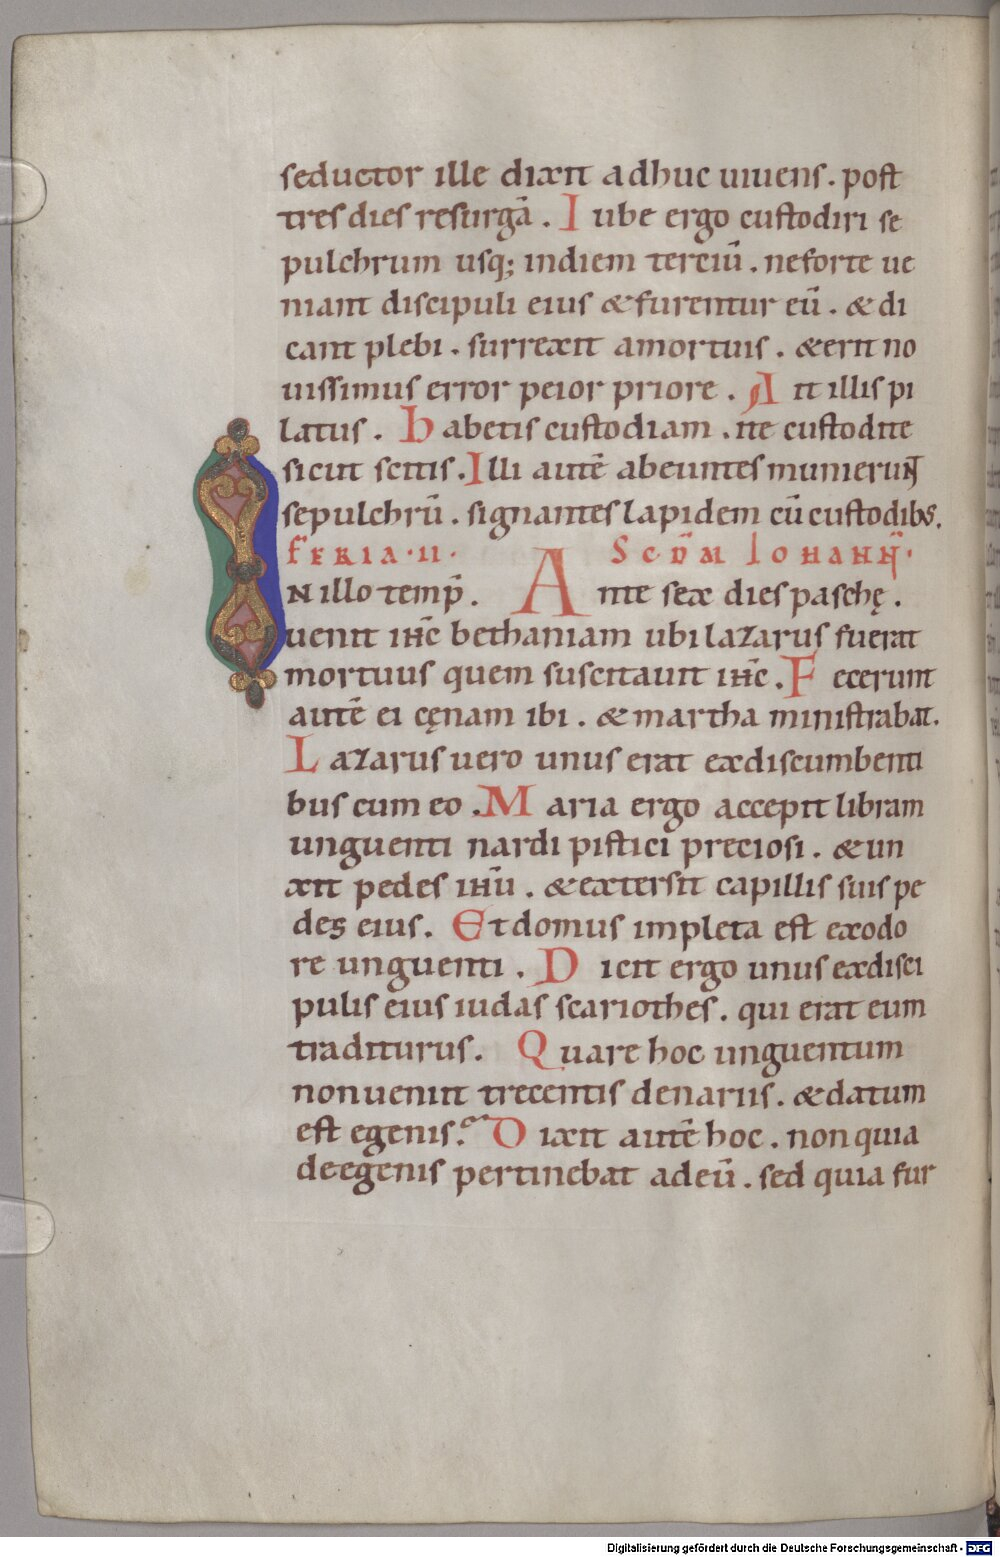 seductor ille dixit adhuc uiuens. post
tres dies resurgā. Iube ergo custodiri se
pulchrum usq; indiem terciū. neforte ue
niant discipuli eius &furentur eū. & di
cant plebi. surrexit amortuis. &erit no
uissimus error peior priore. Ait illis pi
latus. Habetis custodiam. ite custodite
sicut scitis. Illi autē abeuntes munierunt
sepulchrū. signantes lapidem cū custodibs.
FERIA·II· SCDM IOHANN̄·
IN illo temp̄. Ante sex dies paschę.
uenit ih̄c bethaniam ubi lazarus fuerat
mortuus quem suscitauit ih̄c. Fecerunt
autē ei cęnam ibi. & martha ministrabat.
Lazarus uero unus erat exdiscumbenti
bus cum eo. Maria ergo accepit libram
unguenti nardi pistici preciosi. & un
xit pedes ih̄u. &extersit capillis suis pe
des eius. Et domus impleta est exodo
re unguenti. Dicit ergo unus exdisci
pulis eius iudas scariothes. qui erat eum
traditurus. Quare hoc unguentum
nonuenit trecentis denariis. &datum
est egenis? Dixit autē hoc. non quia
deegenis pertinebat adeū. sed quia fur
Digitalisierung gefördert durch die Deutsche Forschungsgemeinschaft - DFG